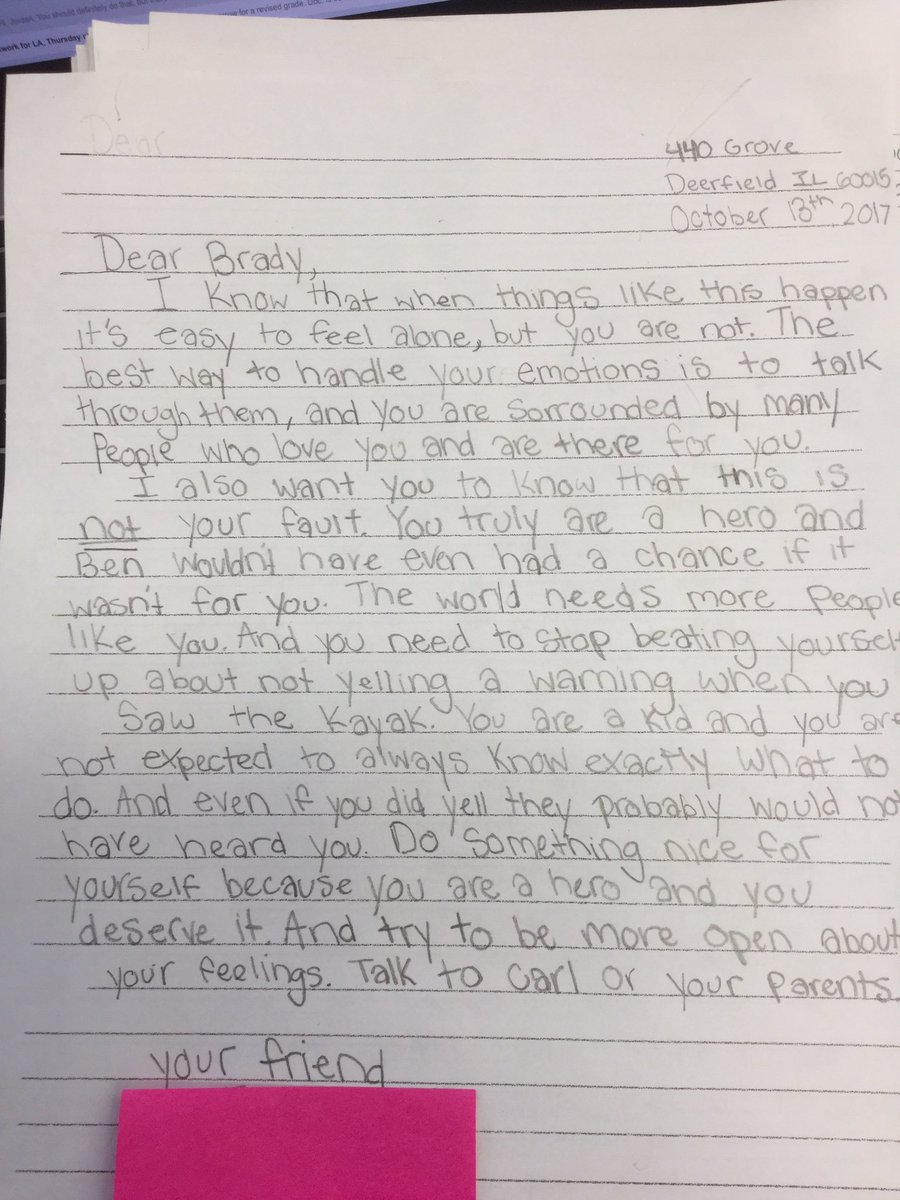 R, Jordan. You should definitely do that. But
for a revised grade. Doc. is
work for LA, Thursday
Dear
440 Grove
Deerfield IL 60015
October 13th, 2017
Dear Brady,
I know that when things like this happen
it's easy to feel alone, but you are not. The
best way to handle your emotions is to talk
through them, and you are sorrounded by many
People who love you and are there for you.
I also want you to know that this is
not your fault. You truly are a hero and
Ben wouldn't have even had a chance if it
wasn't for you. The world needs more people
like you. And you need to stop beating yourself
up about not yelling a warning when you
Saw the Kayak. You are a kid and you are
not expected to always know exactly what to
do. And even if you did yell they probably would not
have heard you. Do something nice for
yourself because you are a hero and you
deserve it. And try to be more open about
your feelings. Talk to Carl or your parents.
your friend